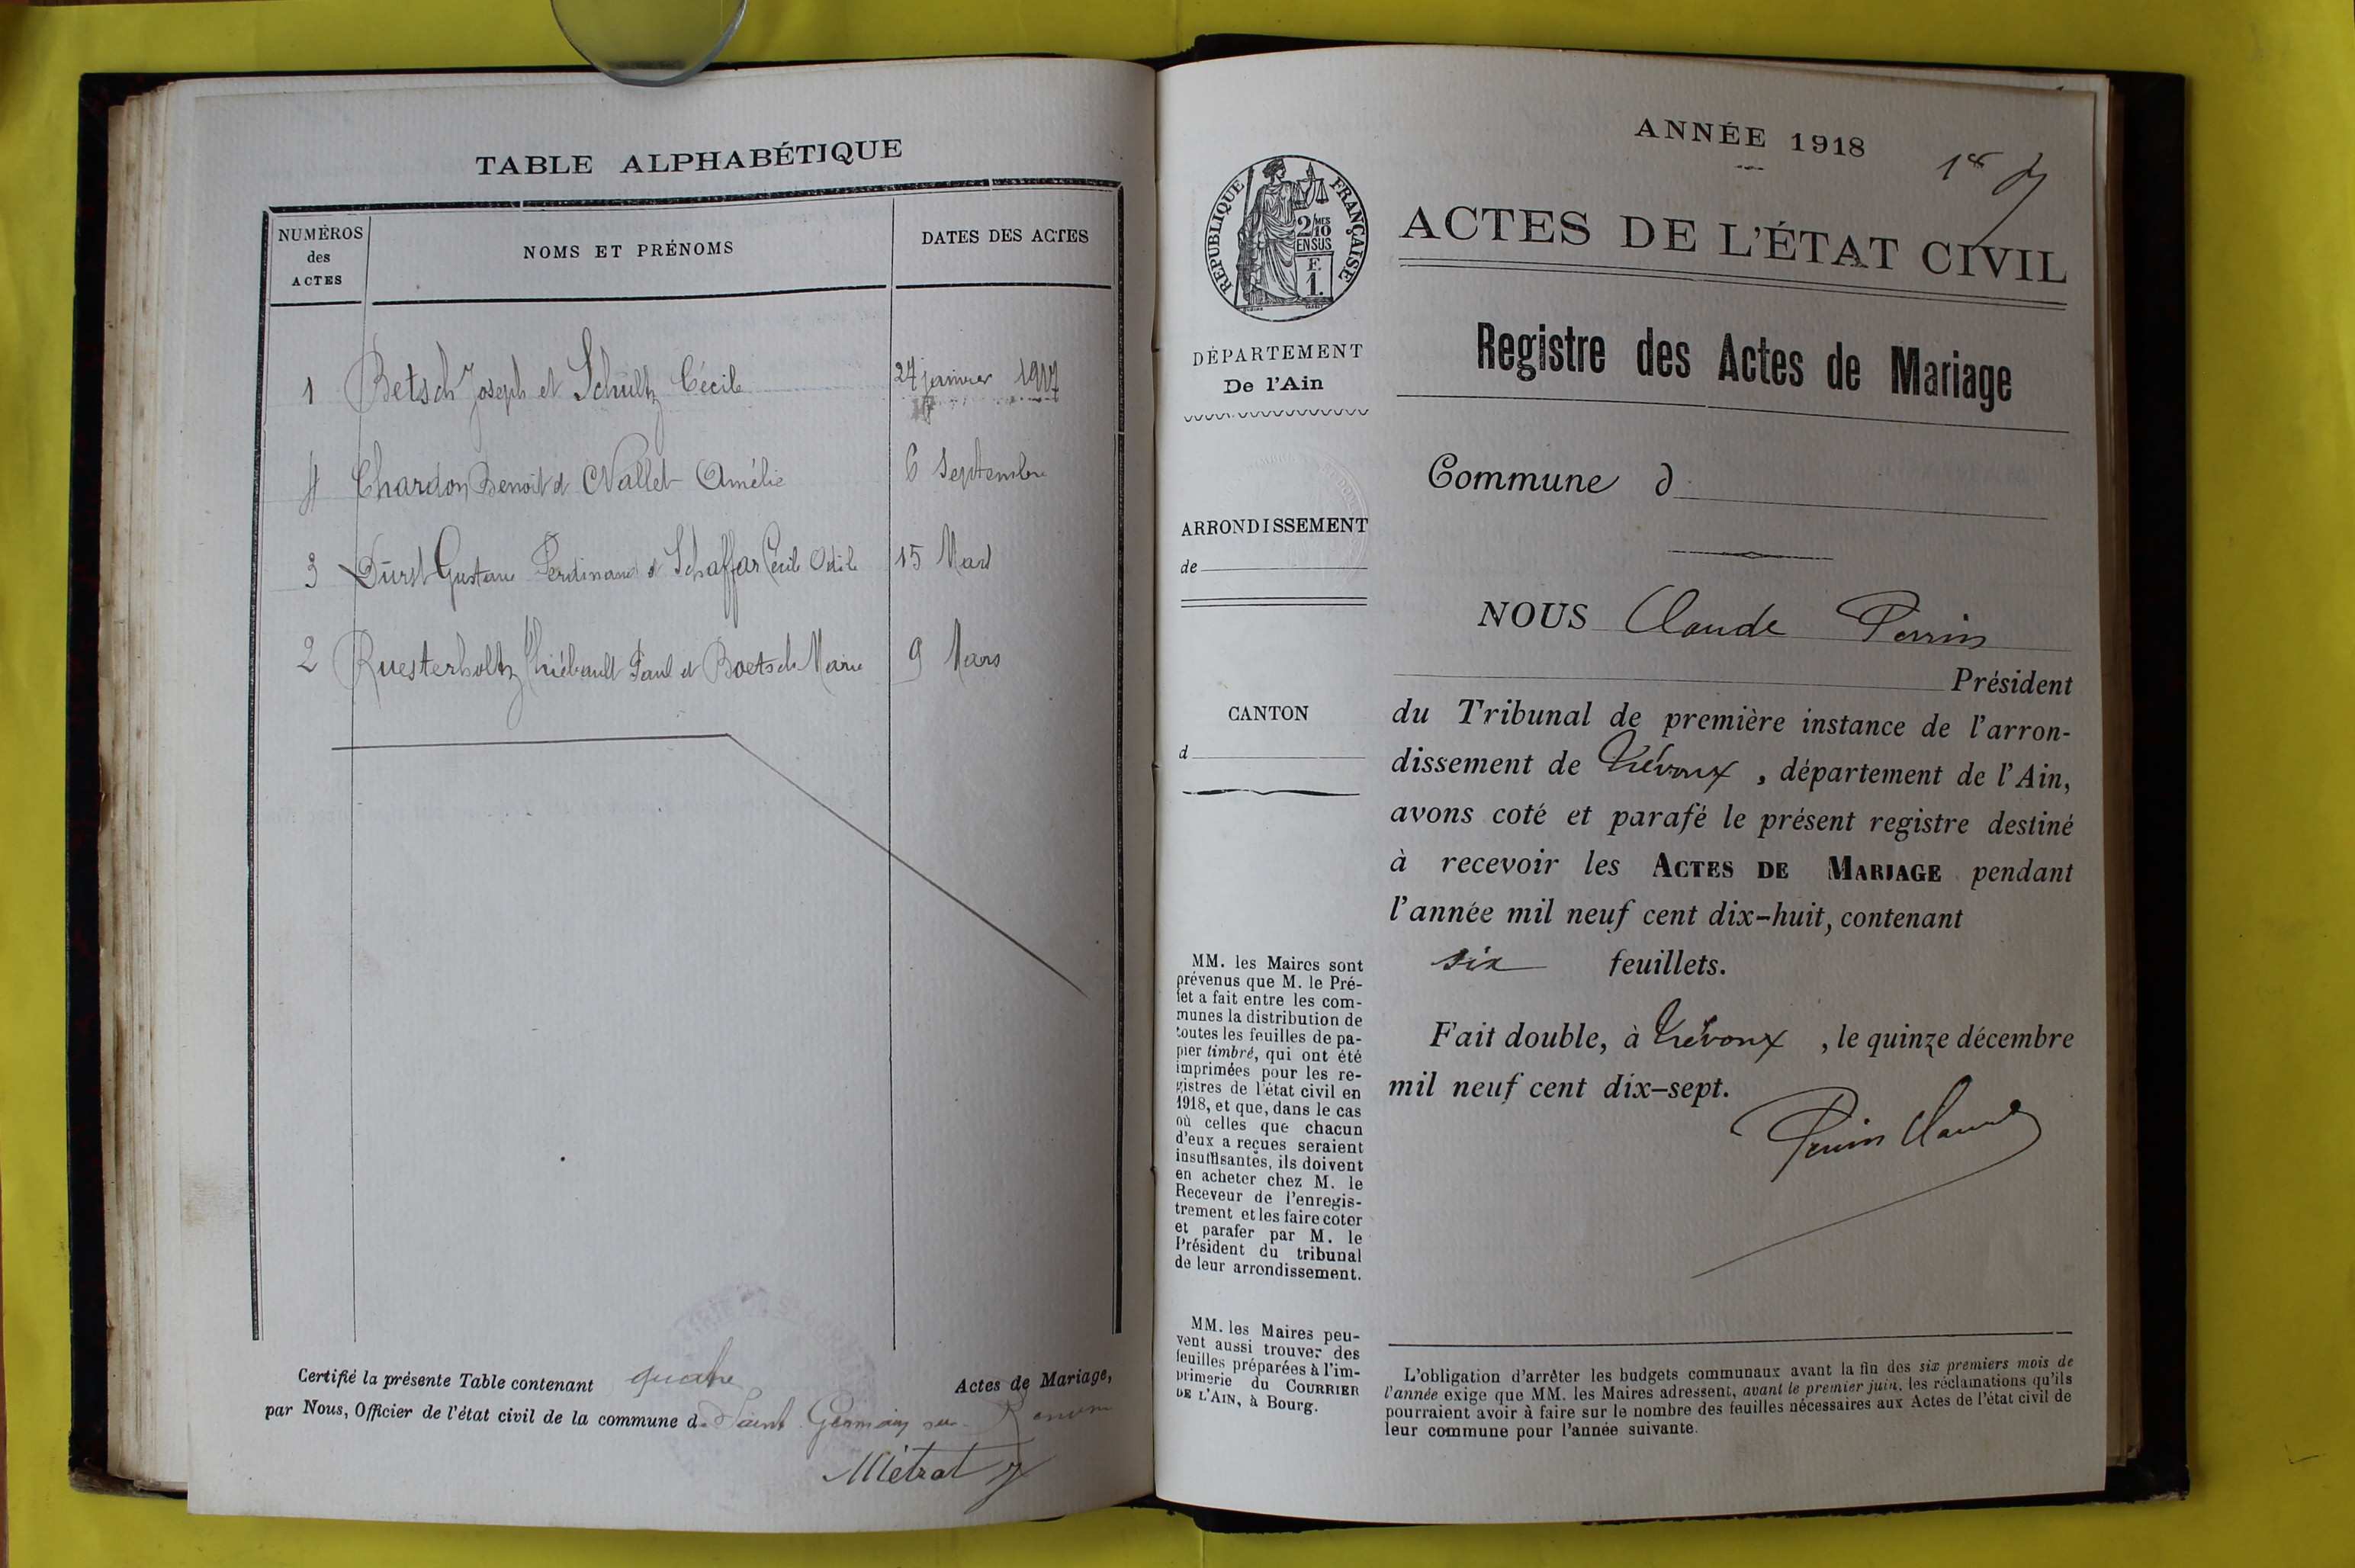 TABLE ALPHABÉTIQUE
NUMÉROS
des
ACTES
NOMS ET PRÉNOMS
DATES DES ACTES
1 Betsch Joseph et Schultz Cécile 24 janvier 1917
4 Chardon Benoit et Vallet Amélie 6 Septembre
3 Dürst Gustave Ferdinand et Schaffar Cécile Odile 15 Mars
2 Ruesterholtz Thiébault Paul et Boetsch Marie 9 Mars
Certifié la présente Table contenant quatre Actes de Mariage,
par Nous, Officier de l'état civil de la commune de Saint Germain sur Renom
Métrat
ANNÉE 1918
ACTES DE L'ÉTAT CIVIL
Registre des Actes de Mariage
RÉPUBLIQUE FRANÇAISE
2/10 MES
EN SUS
F.
1.
DÉPARTEMENT
De l'Ain
ARRONDISSEMENT
de
CANTON
d
MM. les Maires sont
prévenus que M. le Pré-
fet a fait entre les com-
munes la distribution de
toutes les feuilles de pa-
pier timbré, qui ont été
imprimées pour les re-
gistres de l'état civil en
1918, et que, dans le cas
où celles que chacun
d'eux a reçues seraient
insuffisantes, ils doivent
en acheter chez M. le
Receveur de l'enregis-
trement et les faire coter
et parafer par M. le
Président du tribunal
de leur arrondissement.
MM. les Maires peu-
vent aussi trouver des
feuilles préparées à l'im-
primerie du COURRIER
DE L'AIN, à Bourg.
Commune d
NOUS Claude Perrin
Président
du Tribunal de première instance de l'arron-
dissement de Trévoux, département de l'Ain,
avons coté et parafé le présent registre destiné
à recevoir les ACTES DE MARIAGE pendant
l'année mil neuf cent dix-huit, contenant
six feuillets.
Fait double, à Trévoux, le quinze décembre
mil neuf cent dix-sept.
Perrin Claude
L'obligation d'arrêter les budgets communaux avant la fin des six premiers mois de
l'année exige que MM. les Maires adressent, avant le premier juin, les réclamations qu'ils
pourraient avoir à faire sur le nombre des feuilles nécessaires aux Actes de l'état civil de
leur commune pour l'année suivante.